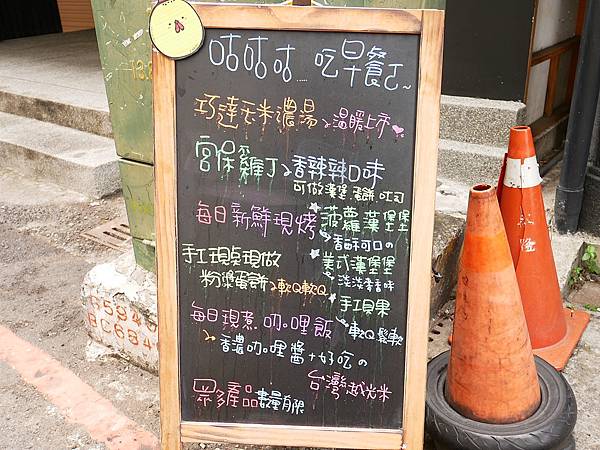 咕咕咕……吃早餐了~
巧達玉米濃湯、溫暖上市
宮保雞丁、香辣辣口味
可做漢堡.蛋餅.吐司
每日新鮮現烤
菠蘿漢堡堡
香酥可口の
美式漢堡堡
淡淡麥香味
手工貝果
軟Q鬆軟
手工現桌現做
粉漿蛋餅、軟Q軟Q
每日現煮 咖哩飯
香濃咖哩醬+好吃の
台灣越光米
眾多產品數量有限
65940
BC654